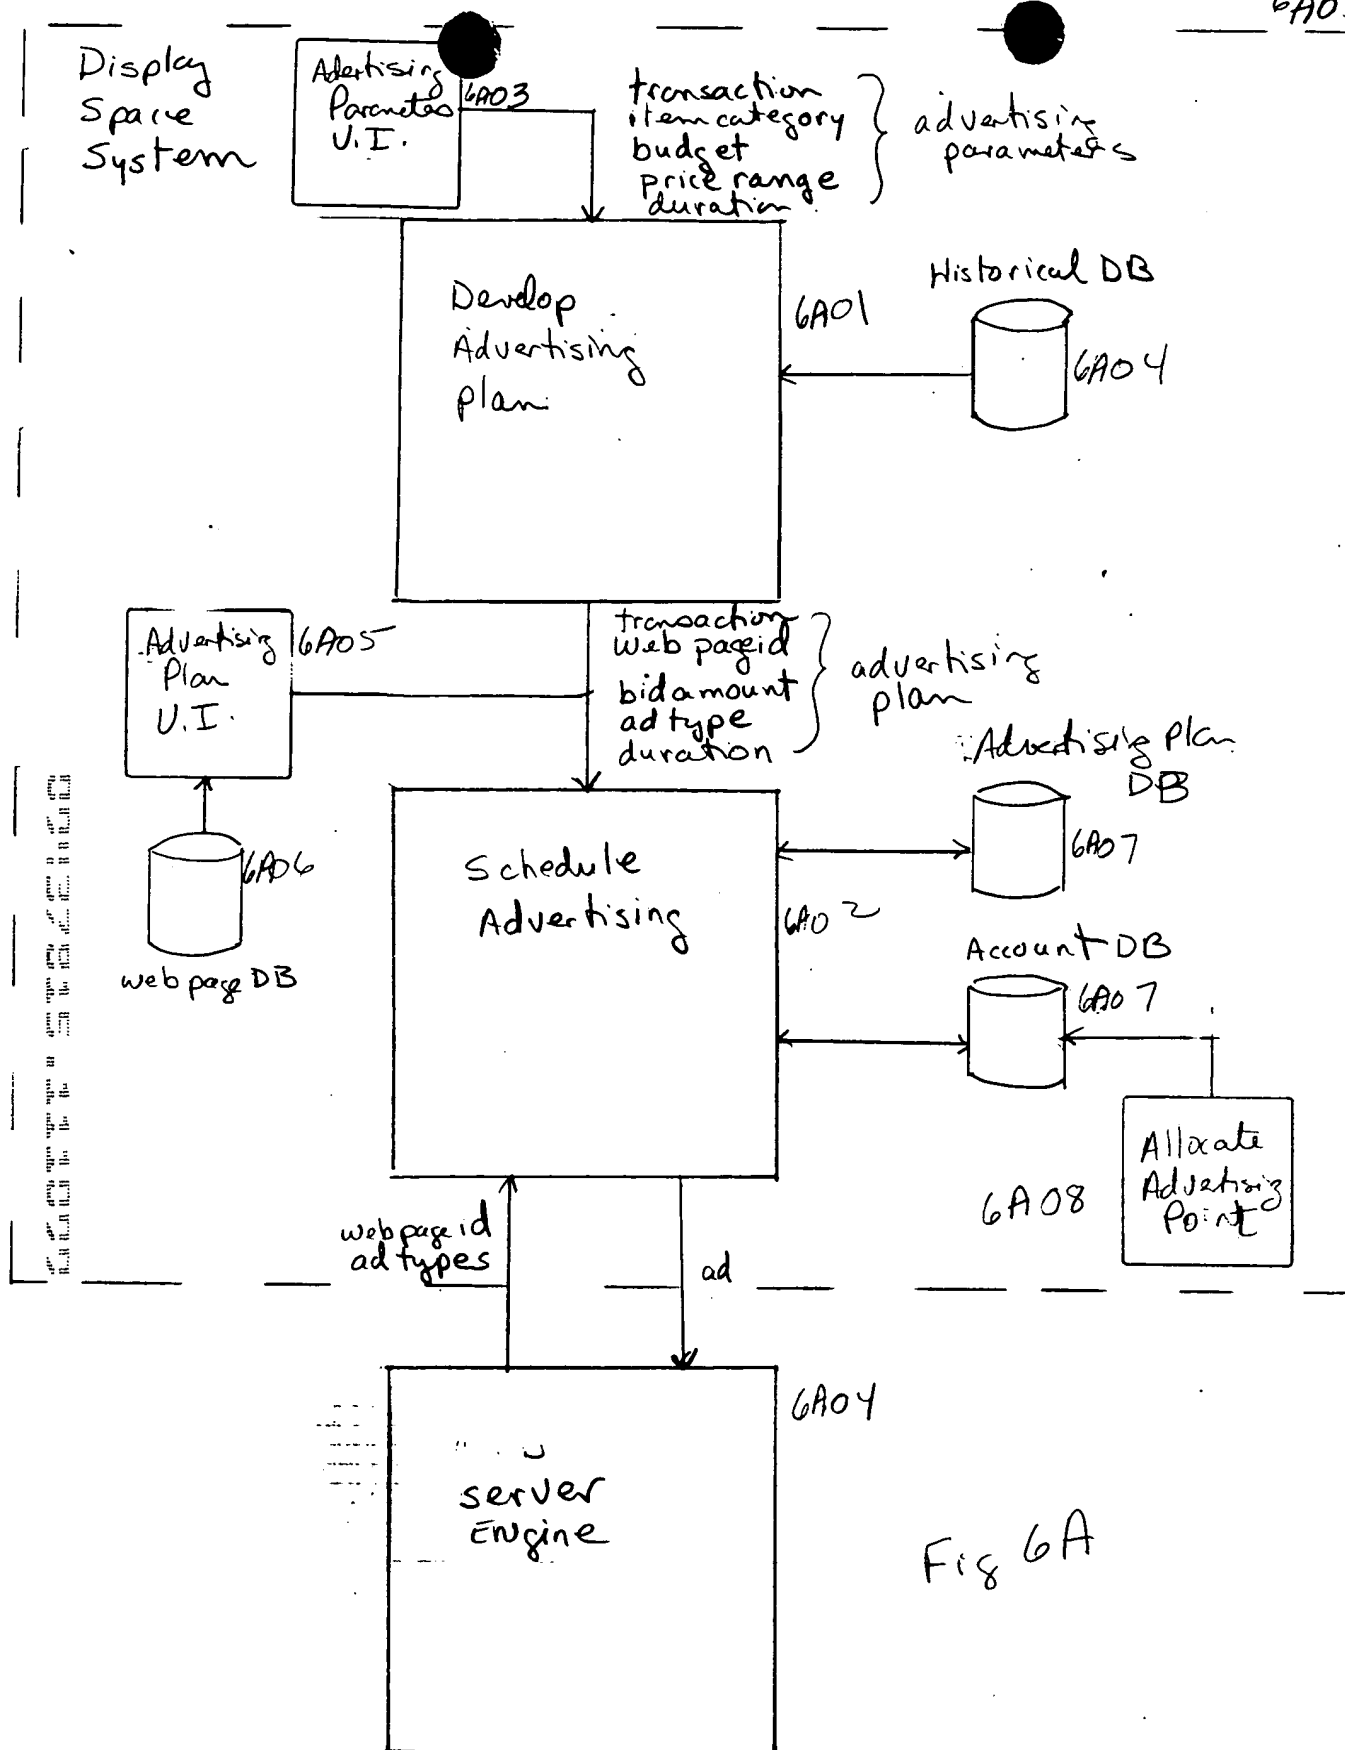 6A0
Display
Space
System
Adertising
Parameters
U.I.
6A03
transaction
item category
budget
price range
duration
advertising
parameters
Develop
Advertising
plan
6A01
Historical DB
6A04
Advertising
Plan
U.I.
6A05
transaction
web pageid
bid amount
ad type
duration
advertising
plan
Advertising Plan
DB
6A07
6A06
web page DB
Schedule
Advertising
6A02
Account DB
6A07
Allocate
Advertising
Point
6A08
web page id
ad types
ad
6A04
server
Engine
Fig 6A